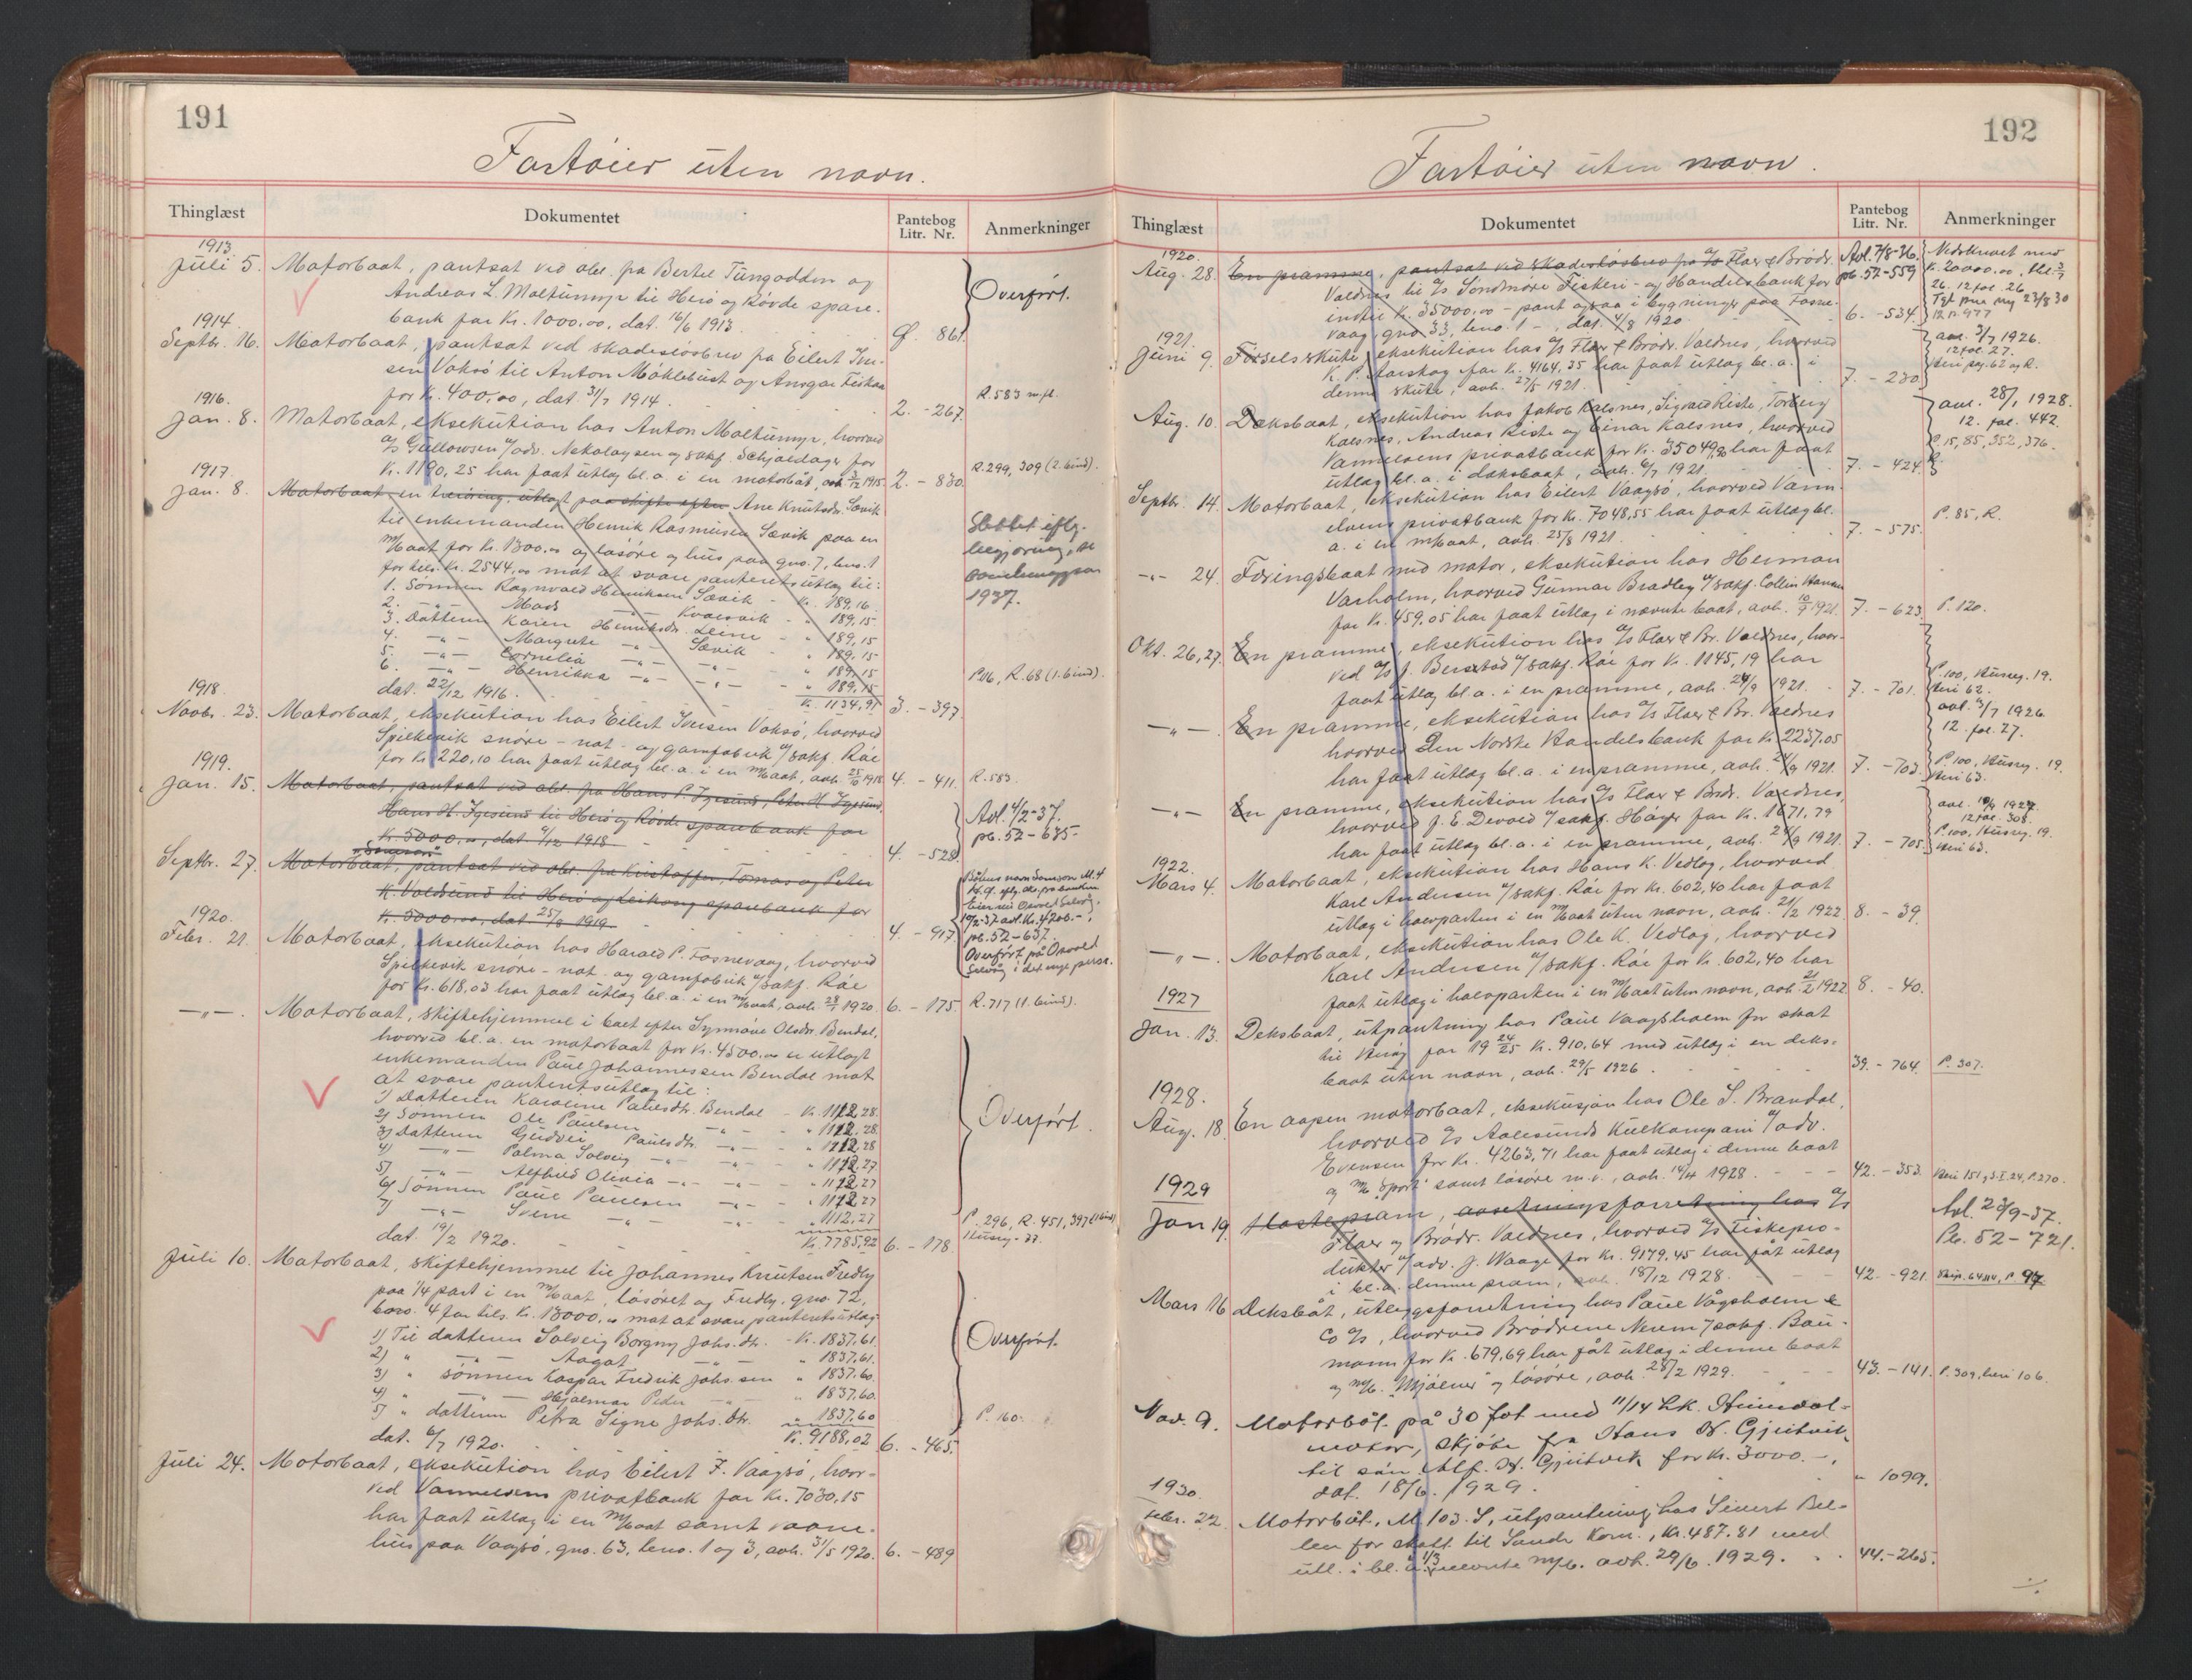 191
Fartöier uten navn.
Thinglæst
Dokumentet
Pantebog
Litr. Nr.
Anmerkninger
1913.
Juli 5. Motorbaat, pantsat ved obl. fra Bertel Tungodden og
Andreas L. Moltumyr til Herö og Rövde spare-
bank for Kr. 1000.00, dat. 16/6 1913. 861.
Overfört.
1914.
Septbr. 16. Motorbaat, pantsat ved skadeslösbrev fra Eilert Iver-
sen Voksö til Anton Möklebust og Ansgar Fiskaa
for Kr. 400,00, dat. 31/7 1914. 2. - 267.
R. 583 m.fl.
1916.
Jan. 8. Motorbaat, eksekution hos Anton Moltumyr, hvorved
A/S Gullowsen v/adv. Nikolaysen og sakf. Schjoldager for
Kr. 1190,25 har faat utlæg bl. a. i en motorbåt, avh. 3/12 1915. 2. - 830.
R. 299, 309 (2. bind).
1917.
Jan. 8. Motorbaat, en treöring, utlagt paa skifte efter Ane Knutsdr. Sævik
til enkemanden Henrik Rasmusen Sævik paa en
m/baat for Kr. 1300.00 og lösöre og hus paa gno. 7, bno. 1
for tils. Kr. 2544,00 mot at svare panteretsutlæg til:
1. Sönnen Ragnvald Henriksen Sævik - Kr. 189,16
2. -"- Mads -"- Kvalsvik - " 189,15
3. Datteren Karen Henriksdr. Leine - " 189,15
4. -"- Margrete -"- Sævik - " 189,15
5. -"- Cornelia -"- -"- - " 189,15
6. -"- Henrikka -"- -"- - " 189,15
dat. 22/12 1916. Kr. 1134,91 3. - 397
Slettet eftr.
1937.
P. 16, R. 68 (1. bind).
1918.
Novbr. 23. Motorbaat, eksekution hos Eilert Iversen Voksö, hvorved
Spilkevik snöre- not- og garnfabrik v/sakf. Röe
for Kr. 220,10 har faat utlæg bl. a. i en m/baat, avh. 25/10 1918 4. - 411.
R. 583.
1919.
Jan. 15. Motorbaat, pantsat ved obl. fra Hans P. Igesund, Peter H. Igesund,
Hans H. Igesund til Herö og Rövde sparebank for
Kr. 5000.00, dat. 9/12 1918 4. - 528.
Avl. 4/2-37.
pb. 52-635-
"Samson"
Septbr. 27. Motorbaat, pantsat ved obl. fra Kristoffer, Tomas og Peter
K. Voldsund til Herö og Leikong sparebank for
Kr. 5000.00, dat. 25/8 1919. 4. - 917.
Båtens navn Samson M. 4
10/2-37 avl. Kr. 4200.-,
pb. 52-637.
Overfört på Osvold
1920.
Febr. 21. Motorbaat, eksekution hos Harald P. Fosnevaag, hvorved
Spilkevik snöre- not- og garnfabrik v/sakf. Röe
for Kr. 618,03 har faat utlæg bl. a. i en m/baat, avh. 28/1 1920. 6. - 175.
R. 717 (1. bind).
-"-. Motorbaat, skiftehjemmel i boet efter Synnöve Olsdr. Bendal,
hvorved bl. a. en motorbaat for Kr. 4500.00 er utlagt
enkemanden Paul Johannessen Bendal mot
at svare panteretsutlæg til:
1) Datteren Karoline Paulsdtr. Bendal - Kr. 1112,28.
2) Sönnen Ole Paulsen -"- - " 1112,28.
3) Datteren Gudvei Paulsdtr. -"- - " 1112,28
4) -"- Palma Solveig -"- -"- - " 1112,27
5) -"- Alfhild Olivia -"- -"- - " 1112,27
6) Sönnen Paul Paulsen -"- - " 1112,27
7) -"- Svein -"- -"- " 1112,27
dat. 19/2 1920. Kr. 7785,92 6. - 178.
Overfört.
P. 296, R. 451, 397 (1 bind)
Juli 10. Motorbaat, skiftehjemmel til Johannes Knutsen Fredly
paa 1/4 part i en m/baat, lösöret og Fredly, gno. 72,
bno. 4 for tils. Kr. 13000.00 mot at svare panteretsutlæg
1) Til datteren Solveig Borgny Johs. dtr. - Kr. 1837,61.
2) " -"- Aagot -"- " 1837,61.
3) " sönnen Kaspar Fredrik Johs. sen " 1837,60.
4) " -"- Hjalmar Peder -"- " 1837,60.
5) " datteren Petra Signe Johs. dtr. " 1837,60
dat. 6/7 1920. Kr. 9188,02 6. - 465.
Overfört.
P. 160.
Juli 24. Motorbaat, eksekution hos Eilert F. Vaagsö, hvor-
ved Vannelvens privatbank for Kr. 7030,15
har faat utlæg i en m/baat samt vaane-
hus paa Vaagsö, gno. 63, bno. 1 og 3, avh. 31/5 1920. 6. - 489
192
Fartöier uten navn.
Thinglæst
Dokumentet
Pantebog
Litr. Nr.
Anmerkninger
1920.
Aug. 28. En pramme, pantsat ved skadeslösbrev fra A/S Flaer & Brödr.
Voldnes til A/S Söndmöre Fiskeri- og Handelsbank for
indtil Kr. 35000,00 - pant ogsaa i bygninger paa Fosne-
vaag, gno. 33, bno. 1 -, dat. 4/8 1920. 6. - 534.
Avl. 7/8-36.
pb. 52-559
Nedskrevet med
Kr. 20000.00,
26. 12 fol. 26
12 p. 977
1921.
Juni 9. Förselsskute, eksekution hos A/S Flaer & Brödr. Voldnes, hvorved
K. P. Aarskog for Kr. 4164,35 har faat utlæg bl. a. i
denne skute, avh. 27/5 1921. 7. - 230.
avl. 3/7 1926.
12 fol. 27.
Aug. 10. Dæksbaat, eksekution hos Jakob Kalsnes, Sigvard Riste, Torberg
Kalsnes, Andreas Riste og Einar Kalsnes, hvorved
Vannelvens privatbank for Kr. 35049,80 har faat
utlæg bl. a. i dæksbaat, avh. 6/7 1921. 7. - 424.
avl. 28/1 1928.
12. fol. 442.
P. 15, 85, 352, 376.
Septbr. 14. Motorbaat, eksekution hos Eilert Vaagsö, hvorved Vann-
elvens privatbank for Kr. 7048,55 har faat utlæg bl.
a. i en m/baat, avh. 25/8 1921. 7. - 575.
P. 85, R.
-"- 24. Föringsbaat med motor, eksekution hos Herman
Varholm, hvorved Gunnar Bradley v/sakf. Collin Hansen
for Kr. 459.05 har faat utlæg i nævnte baat, avh. 10/9 1921. 7. - 623.
P. 120.
Okt. 26, 27. En pramme, eksekution hos A/S Flaer & Br. Voldnes, hvor-
ved A/S J. Berstad v/sakf. Röe for Kr. 1145,19 har
faat utlæg bl. a. i en pramme, avh. 24/9 1921. 7. - 701.
P. 100, Husreg. 19.
-"-. En pramme, eksekution hos A/S Flaer & Br. Voldnes
hvorved Den Norske Handelsbank for Kr. 2237.05
har faat utlæg bl. a. i en pramme, avh. 24/9 1921. 7. - 703.
avl. 3/7 1926
12. fol. 27.
P. 100, Husreg. 19.
-"-. En pramme, eksekution hos A/S Flaer & Brdr. Voldnes,
hvorved J. E. Devold v/sakf. Höyer for Kr. 1671.79
har faat utlæg bl. a. i en pramme, avh. 24/9 1921. 7. - 705.
12 fol. 308.
P. 100, Husreg. 19.
1922.
Mars 4. Motorbaat, eksekution hos Hans K. Vedlog, hvorved
Karl Andersen v/sakf. Röe for Kr. 602,40 har faat
utlæg i halvparten i en m/baat uten navn, avh. 21/2 1922. 8. - 39.
-"-. Motorbaat, eksekution hos Ole K. Vedlog, hvorved
Karl Andersen v/sakf. Röe for Kr. 602,40 har
faat utlæg i halvparten i en m/baat uten navn, avh. 21/2 1922 8. - 40.
1927
Jan. 13. Deksbaat, utpantning hos Paul Vaagsholm for skat
til Heröy for 19 24/25 Kr. 910,64 med utlæg i en deks-
baat uten navn, avh. 29/5 1926. 39. - 764.
P. 307.
1928.
Aug. 18. En aapen motorbaat, eksekusjon hos Ole S. Brandal,
hvorved A/S Aalesunds Kulkompani v/adv.
Evensen for Kr. 4263,71 har faat utlæg i denne baat
og m/k "Sport" samt lösöre m.v., avh. 14/4 1928. 42. - 353.
1929
Jan 19. Hostepram, avsetningsforretning hos A/S
Flaer og Brödr. Voldnes, hvorved A/S Fiskepro-
dukter v/adv. J. Waage for Kr. 9179,45 har fåt utlæg
i bl. a. denne pram, avh. 18/12 1928. 42. - 921.
Avl. 23/9-37.
Pb. 52-721.
Mars 16 Deksbåt, utleggsforretning hos Paul Vågsholm &
Co A/S, hvorved Brödrene Nerem v/sakf. Bau-
mann for Kr. 679,69 har fåt utlæg i denne baat
og m/k. "Mjölner" og lösöre, avh. 28/2 1929. 43. - 141.
P. 309, 106.
Nov. 9. Motorbåt på 30 fot med 11/14 hk. Heimdal-
motor, skjöte fra Hans N. Gjertvik
til sön Alf. N. Gjertvik for Kr. 3000.-,
dat. 18/6. 1929. " 1099.
1930.
Febr. 22. Motorbåt, M. 103. S, utpantning hos Sivert Bel-
len for skatt til Sande Kom., Kr. 487.81 med
utl. i bl. a. 1/3 i nevnte m/b. avh. 29/6. 1929. 44. - 265.